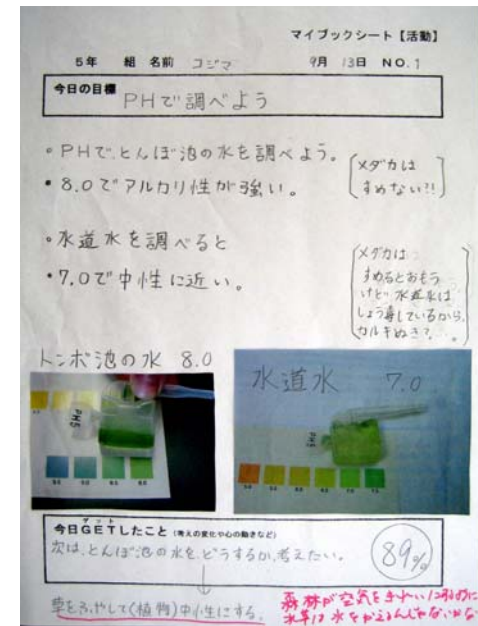 マイブックシート【活動】
5年 組 名前 コジマ 9月 13日 NO.1
今日の目標 PHで調べよう
。PHで、とんぼ池の水を調べよう。
・8.0でアルカリ性が強い。
メダカは
すめない?!
。水道水を調べると
・7.0で中性に近い。
メダカは
すめるとおもう
けど 水道水は
しょう毒しているから、
カルキぬき?。。
トンボ池の水 8.0
水道水 7.0
今日GETしたこと (考えの変化や心の動きなど)
ゲット
次は、とんぼ池の水を、どうするか、考えたい。
89%
草をふやして(植物)中性にする。
森林が空気をきれいにするように
水草は水をかえるんじゃないかな